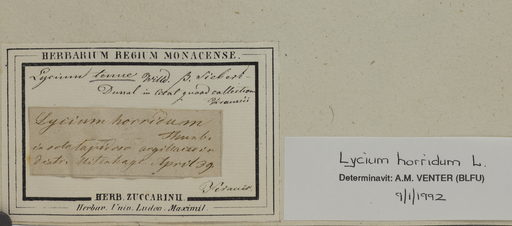 HERBARIUM REGIUM MONACENSE.
Lycium tenue Willd. β. Sieberi
Dunal in
Lycium horridum
Thunb.
in argillaceis
distr. Uitenhage. April 39
HERB. ZUCCARINII
Herbar. Univ. Ludov. Maximil.
Lycium horridum L.
Determinavit: A.M. VENTER (BLFU)
9/1/1992